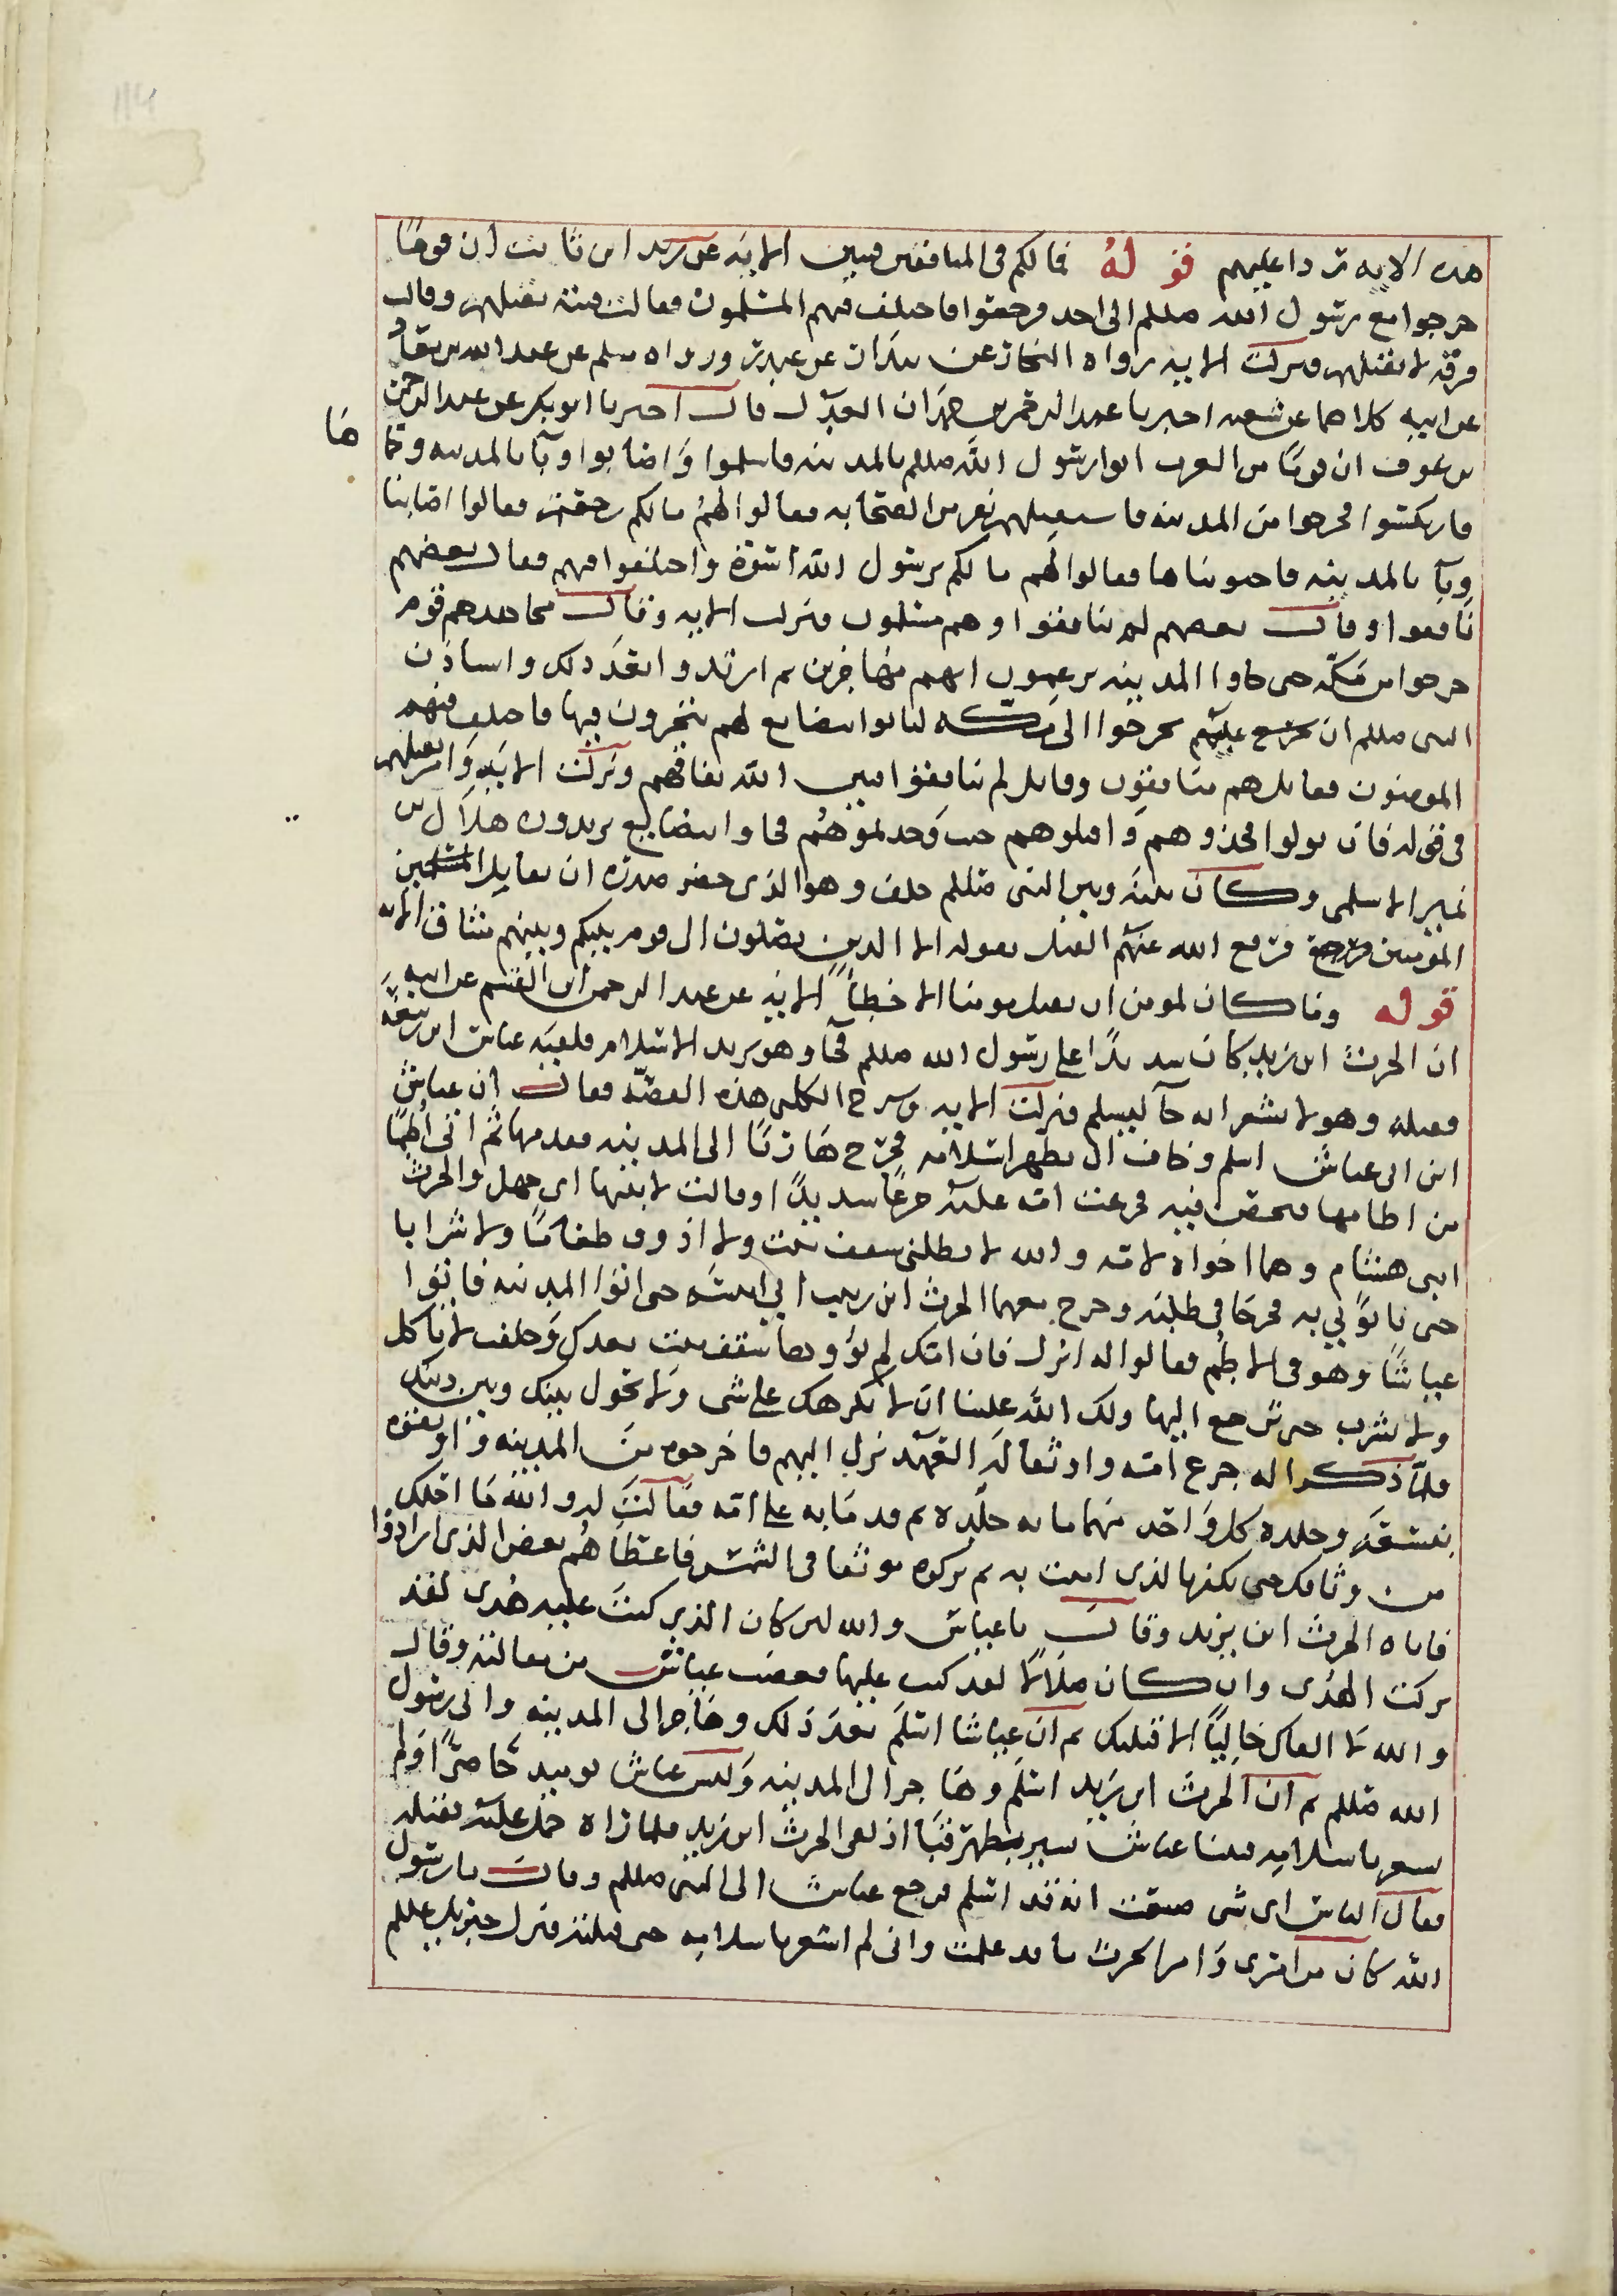 114
هذه الاية ردا عليهم قوله فمالكم في المنافقين فئتين الاية عن زيد ابن ثابت ان قوما
خرجوا مع رسول الله صللم الى احد فرجعوا فاختلف فيهم المسلمون فقالت فئة نقتلهم وقالت
فرقة لا نقتلهم فنزلت الاية رواه البخاري عن بندار عن غندر ورواه مسلم عن عبد الله بن معاذ
عن ابيه كلاهما عن شعبة اخبرنا عبد الرحمن بن حمدان العدل قال اخبرنا ابو بكر عن عبد الرحمن
بن عوف ان قوما من العرب اتوا رسول الله صللم بالمدينة فاسلموا واصابوا وبآ بالمدينة وحما
ها
فاركسوا فخرجوا من المدينة فاستقبلهم نفر من الصحابة فقالوا لهم مالكم رجعتم فقالوا اصابنا
وبآ بالمدينة فاجتويناها فقالوا لهم مالكم برسول الله اسوة واختلفوا فيهم فقال بعضهم
نافقوا وقال بعضهم لم ينافقوا وهم مسلمون فنزلت الاية وقال مجاهد هم قوم
خرجوا من مكة حتى جاوا المدينة يزعمون انهم مهاجرين ثم ارتدوا بعد ذلك واستاذن
النبي صللم ان يخرجوا الى مكة ليأتوا ببضايع لهم يتجرون فيها فاختلف فيهم
المومنون فقائل هم منافقون وقائل لم ينافقوا فبين الله نفاقهم ونزلت الاية وامر بقتلهم
في قوله فان تولوا فخذوهم واقتلوهم حيث وجدتموهم فجاوا ببضايع يريدون هلال بن
عمير الاسلمي وكان بينه وبين النبي صللم حلف وهو الذي حصر صدره ان يقاتل المسلمين
المومنين فرفع الله عنهم القتل بقوله الا الذين يصلون الى قوم بينكم وبينهم ميثاق الاية
قوله وما كان لمومن ان يقتل مومنا الا خطأ الاية عن عبد الرحمن ابن القسم عن ابيه
ان الحرث ابن زيد كان شديدا على رسول الله صللم فجآ وهو يريد الاسلام فلقيه عياش ابن ربيعة
فقتله وهو لا يشعر انه جآ ليسلم فنزلت الاية وشرح الكلبي هذه القصة فقال ان عياش
ابن ابي عياش اسلم وخاف ان يظهر اسلامه فخرج هاربا الى المدينة فقدمها ثم اتى اطما
من اطامها فتحصن فيه فجزعت امه عليه جزعا شديدا وقالت لابنيها ابي جهل والحرث
ابني هشام وهما اخواه لامه والله لا يظلني سقف بيت ولا اذوق طعاما ولا شرابا
حتى تاتوني به فخرجا في طلبه وخرج معهما الحرث ابن زيد ابي انيسه حتى اتوا المدينة فاتوا
عياشا وهو في الاطم فقالوا له انزل فان امك لم يؤوها سقف بيت بعدك وحلفت لا تاكل
ولا تشرب حتى ترجع اليها ولك الله علينا ان لا نكرهك على شى ولا نحول بينك وبين دينك
فلما ذكرا له جزع امه واوثقا له العهد نزل اليهم فاخرجوه من المدينة واوثقوه
بنسعة وجلده كل واحد منهما مائة جلدة ثم قدما به على امه فقالت له والله ما احلك
من وثاقك حتى تكفر بالذي امنت به ثم تركوه موثقا في الشمس فاعطاهم بعض الذي ارادوا
فاتاه الحرث ابن يزيد وقال يا عياش والله لئن كان الذي كنت عليه هدى لقد
تركت الهدى وان كان ضلالا لقد كنت عليها فغضب عياش من مقالته وقال
والله لا القاك خاليا الا قتلتك ثم ان عياشا اسلم بعد ذلك وهاجر الى المدينة والى رسول
الله صللم ثم ان الحرث ابن يزيد اسلم وهاجر الى المدينة وليس عياش يوميد حاضرا ولم
يشعر باسلامه فبينا عياش يسير بظهر قبا اذ لقى الحرث ابن زيد فلما راه حمل عليه فقتله
فقال الناس اي شى صنعت انه قد اسلم فرجع عياش الى النبي صللم وقال يا رسول
الله كان من امري وامر الحرث ما قد علمت واني لم اشعر باسلامه حتى قتلته فنزل جبريل عللم